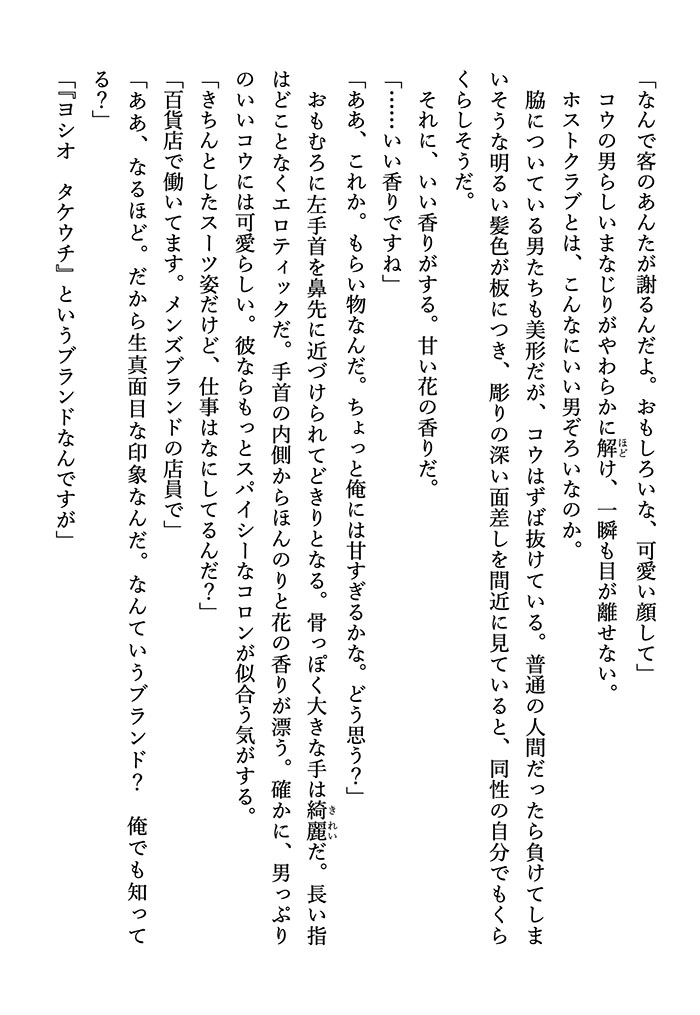 「なんで客のあんたが謝るんだよ。おもしろいな、可愛い顔して」
コウの男らしいまなじりがやわらかに解け、一瞬も目が離せない。
ほど
ホストクラブとは、こんなにいい男ぞろいなのか。
脇についている男たちも美形だが、コウはずば抜けている。普通の人間だったら負けてしま
いそうな明るい髪色が板につき、彫りの深い面差しを間近に見ていると、同性の自分でもくら
くらしそうだ。
それに、いい香りがする。甘い花の香りだ。
「……いい香りですね」
「ああ、これか。もらい物なんだ。ちょっと俺には甘すぎるかな。どう思う？」
おもむろに左手首を鼻先に近づけられてどきりとなる。骨っぽく大きな手は綺麗だ。長い指
きれい
はどことなくエロティックだ。手首の内側からほんのりと花の香りが漂う。確かに、男っぷり
のいいコウには可愛らしい。彼ならもっとスパイシーなコロンが似合う気がする。
「きちんとしたスーツ姿だけど、仕事はなにしてるんだ？」
「百貨店で働いてます。メンズブランドの店員で」
「ああ、なるほど。だから生真面目な印象なんだ。なんていうブランド？　俺でも知って
る？」
「『ヨシオ　タケウチ』というブランドなんですが」